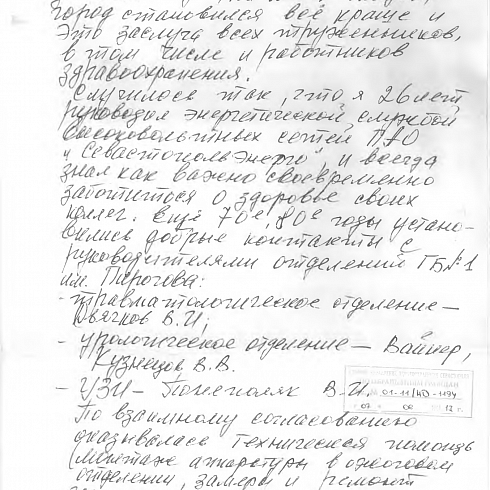 город становился всё краше и
это заслуга всех тружеников,
в том числе и работников
здравоохранения.
Случилось так, что я 26 лет
руководил энергетической службой
высоковольтных сетей ПАО
"Севастопольэнерго", и всегда
знал как важно своевременно
заботиться о здоровье своих
коллег. Ещё 70е, 80е годы устано-
вились добрые контакты с
руководителями отделений ГБ №1
им. Пирогова:
- травматологическое отделение -
Дьячков В.И;
- урологическое отделение - Вайнер,
Кузнецов В.В.
- УЗИ - В.И.
№ 01-11/НО-1194
12 г.
По взаимному согласованию
оказывалась техническая помощь
(монтаж аппаратуры в ожоговом
отделении, замеры и ремонт